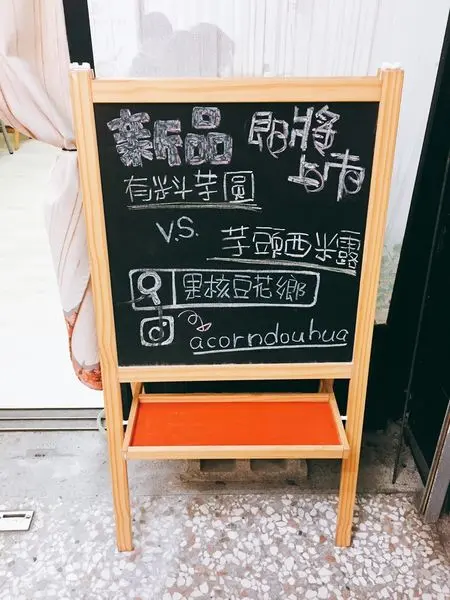 新品 即將
上市
有料芋圓
V.S.
芋頭西米露
果核豆花鄉
acorndouhua